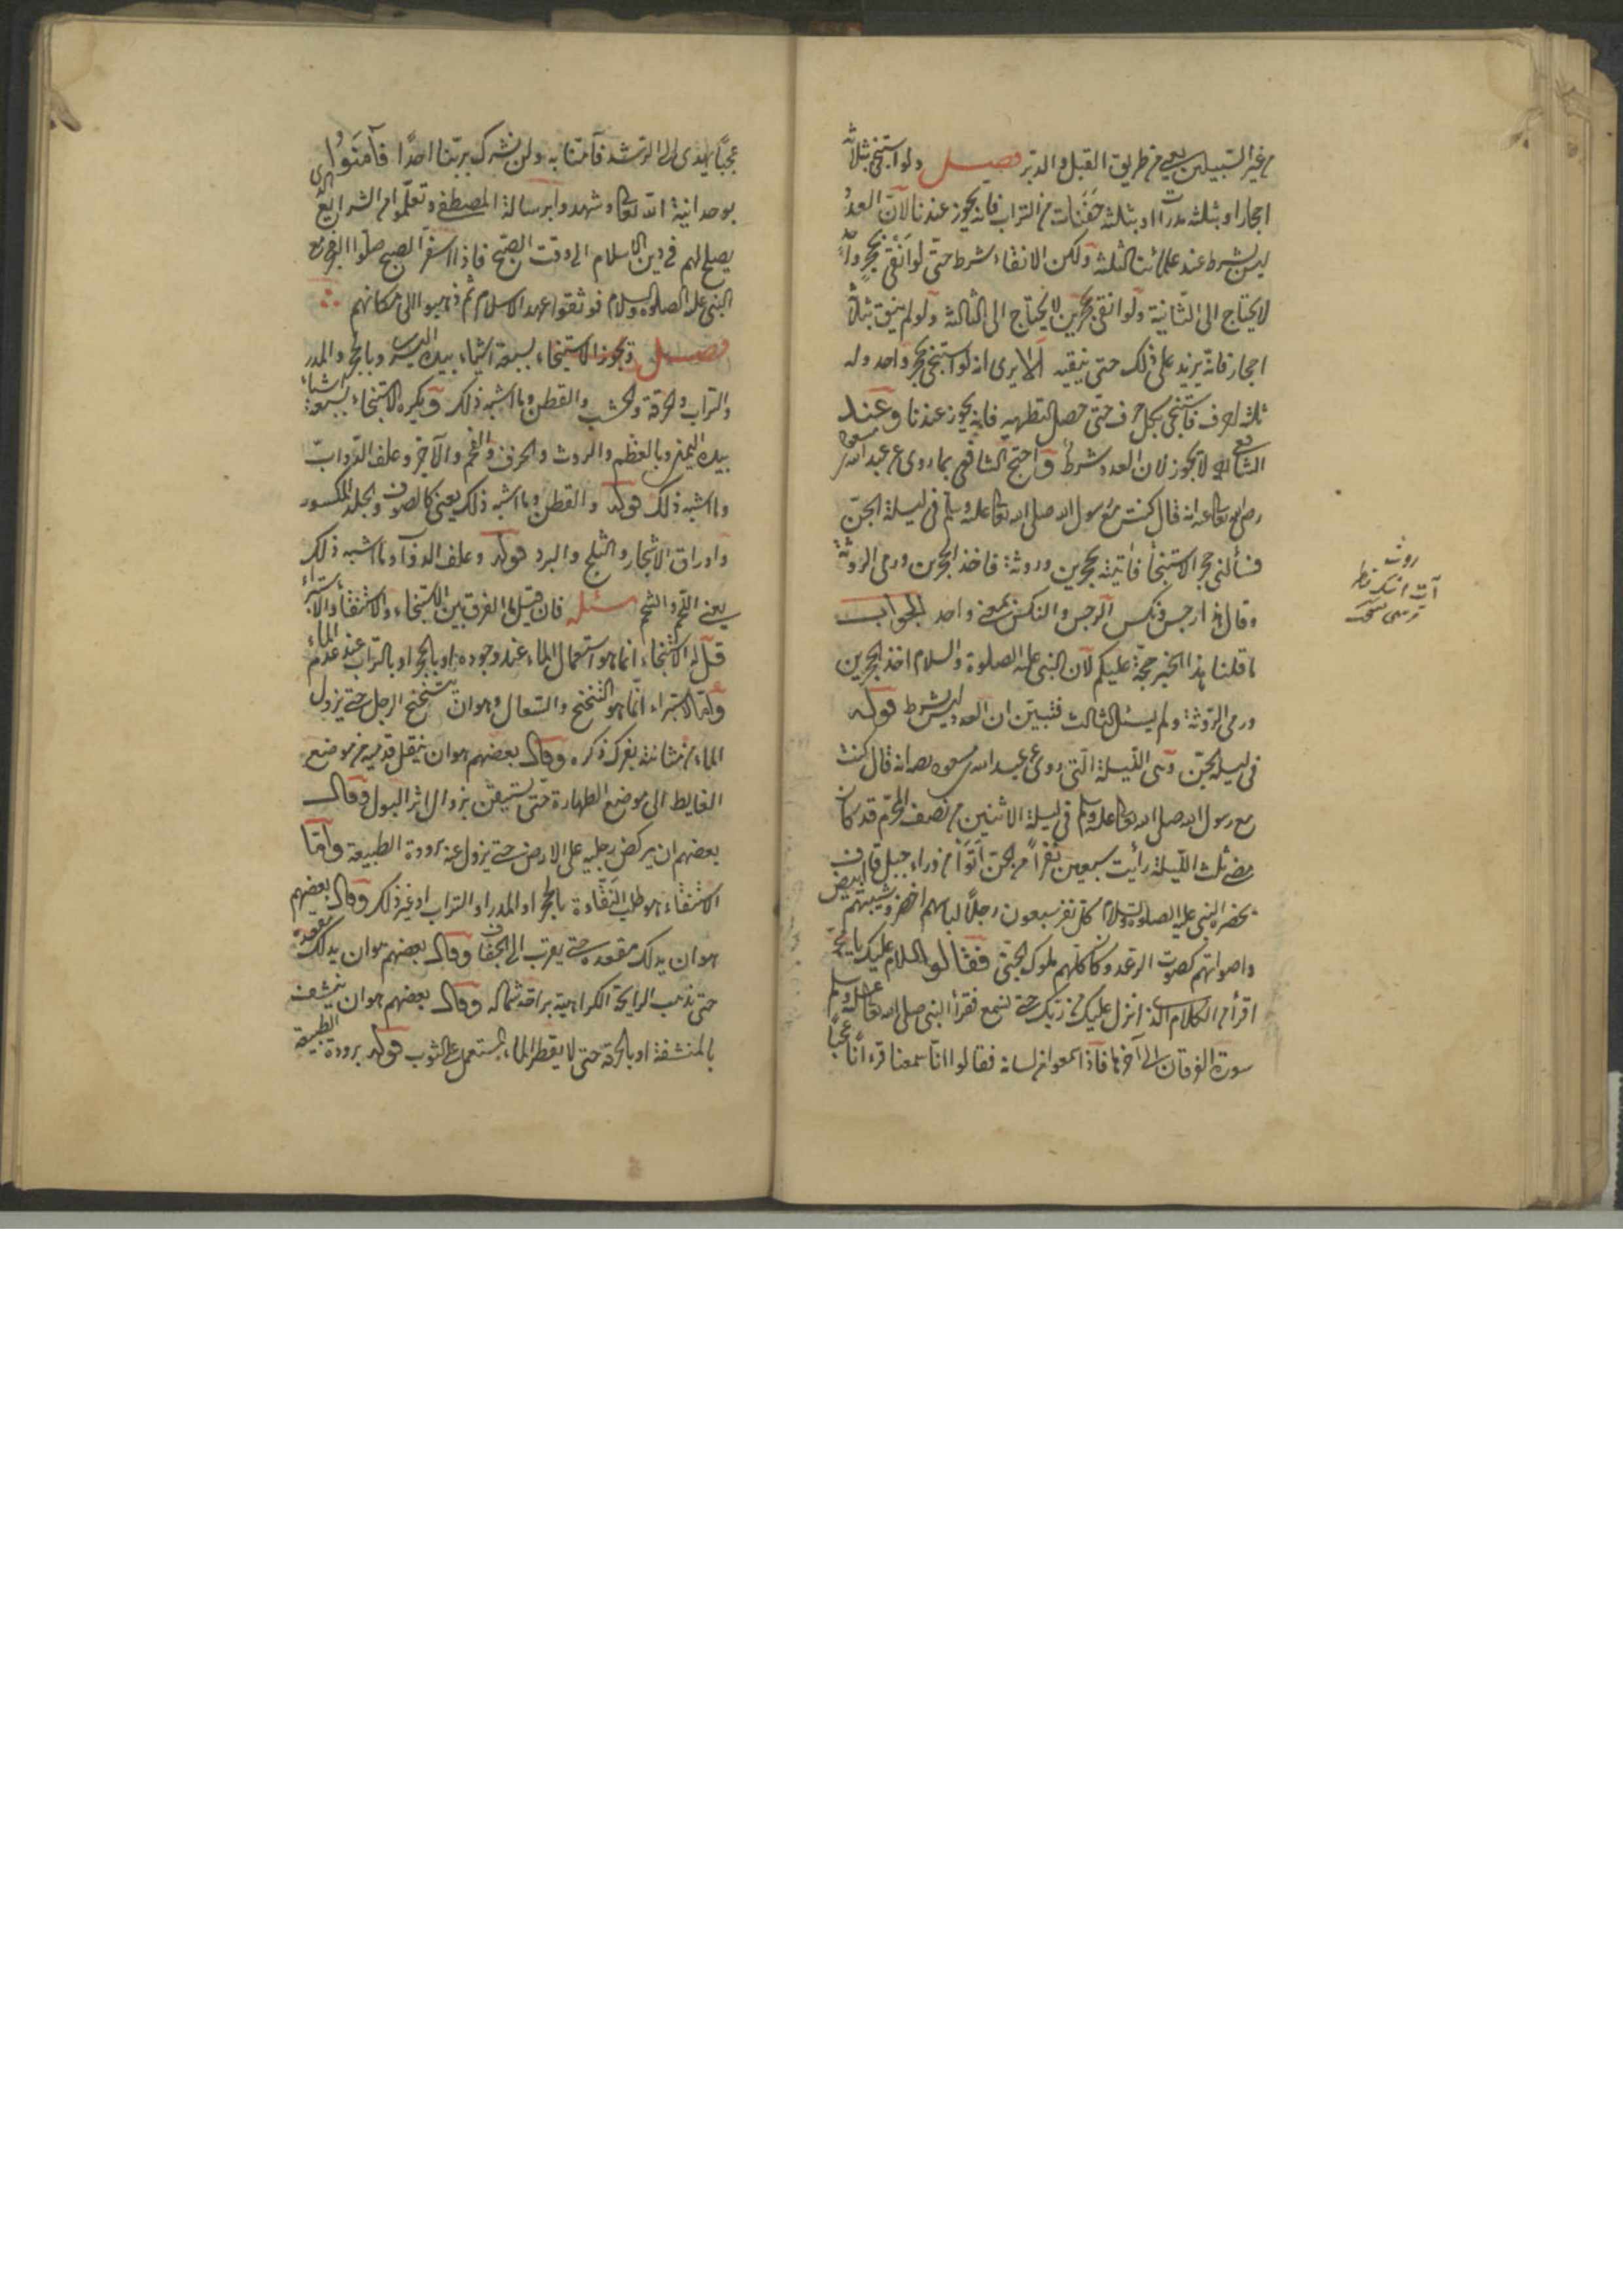 من غير السبيلين يعني من طريق القبل والدبر فصل ولو استنجى بثلاثة
احجار او بثلثة مدرات او بثلثة حفنات من التراب فانه يجوز عندنا لان العدد
ليس بشرط عند علمائنا الثلثة ولكن الانقاء شرط حتى لو انقى بحجر واحد
لا يحتاج الى الثانية ولو انقى بحجرين لا يحتاج الى الثالثة ولو لم ينق بثلاثة
احجار فانه يزيد على ذلك حتى ينقيه الا يرى انه لو استنجى بحجر واحد وله
ثلث احرف فاستنجى بكل حرف حتى حصل التطهير فانه يجوز عندنا وعند
الشافعي لا يجوز لان العدد شرط واحتج الشافعي بما روى عن عبد الله بن مسعود
رضى الله تعالى عنه انه قال كنت مع رسول الله صلى الله تعالى عليه وسلم فى ليلة الجن
فسألنى حجر الاستنجأ فاتيته بحجرين وروثة فاخذ الحجرين ورمى الروثة
وقال هذا رجس ونكس الرجس والنكس بمعنى واحد الجواب
ما قلنا هذا الخبر حجة عليكم لان النبى عليه الصلوة والسلام اخذ الحجرين
ورمى الروثة ولم يسئل الثالث فتبين ان العدد ليس بشرط قوله
فى ليلة الجن وهى الليلة التى روى عن عبد الله بن مسعود انه قال كنت
مع رسول الله صلى الله تعالى عليه وسلم فى ليلة الاثنين من نصف المحرم قد كان
مضى ثلث الليلة رأيت سبعين نفرا من الجن اتوا من وراء جبل قاف
بحضرة النبى عليه الصلوة والسلام كل نفر سبعون رجلا لباسهم اخضر وشيبتهم ابيض
واصواتهم كصوت الرعد وكان كلهم ملوك الجن فقالوا السلام عليك يا محمد
اقرأ من الكلام الذى انزل عليك من ربك حتى نسمع فقرأ النبى صلى الله تعالى عليه وسلم
سورة الفرقان الى آخرها فاذا سمعوا من لسانه فقالوا انا سمعنا قرءانا عجبا
روث
عجبا يهدى الى الرشد فآمنا به ولن نشرك بربنا احدا فآمنوا
بوحدانية الله تعالى وشهدوا برسالة المصطفى وتعلموا من الشرايع الذى
يصلح لهم فى دين الاسلام الى وقت الصبح فاذا اسفر الصبح صلوا الفجر مع
النبى عليه الصلوة والسلام فوثقوا عهد الاسلام ثم ذهبوا الى مكانهم
فصل ويجوز الاستنجاء بسبعة اشياء بيده اليسرى وبالحجر والمدر
والتراب والخرقة والخشب والقطن وما اشبه ذلك ويكره الاستنجاء بسبعة اشياء
بيده اليمنى وبالعظم والروث والخزف والفحم والآجر وعلف الدواب
وما اشبه ذلك قوله والقطن وما اشبه ذلك يعنى كالصوف والجلد المكسور
واوراق الاشجار والثلج والبرد قوله وعلف الدواب وما اشبه ذلك
يعنى اللحم والشحم مسئلة فان قيل ما الفرق بين الاستنجاء والاستنقأ والاستبراء
قيل له الاستنجاء انما هو استعمال الماء عند وجوده او بالحجر او بالتراب عند عدم الماء
واما الاستبراء انما هو التنحنح والسعال وهو ان يتنحنح الرجل حتى يزول
الماء من مثانته بفرك ذكره وقال بعضهم هو ان ينقل قدميه من موضع
الغايط الى موضع الطهارة حتى يستيقن بزوال اثر البول وقال
بعضهم ان يركض برجليه على الارض حتى يزول عنه برودة الطبيعة واما
الاستنقاء هو طلب النقاوة بالحجر او المدر او التراب او غير ذلك وقال بعضهم
هو ان يدلك مقعده حتى يقرب الى الجفاف وقال بعضهم هو ان يدلك مقعده
حتى يذهب الرايحة الكراهية شماله وقال بعضهم هو ان ينشف
بالمنشفة او بالخرقة حتى لا يقطر الماء المستعمل على الثوب قوله برودة الطبيعة